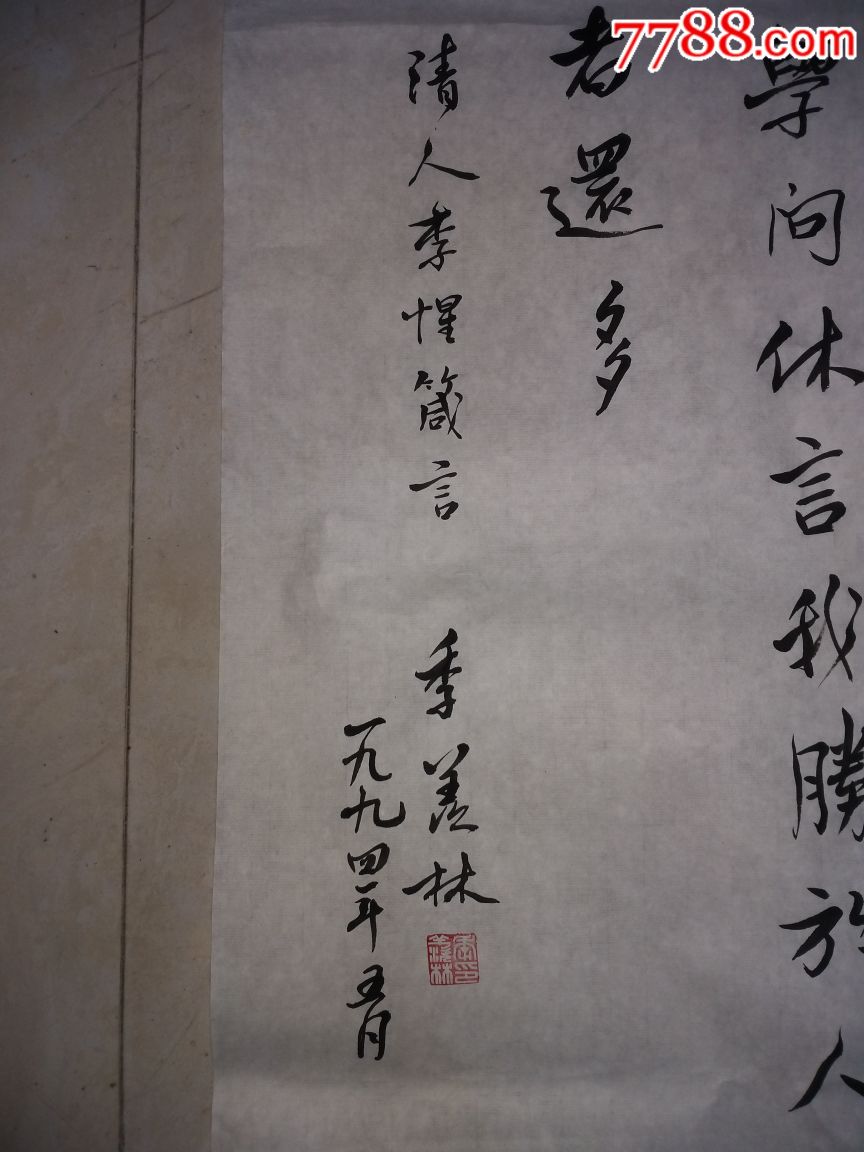 7788.com
學问休言我勝於人
者還多
清人李惺箴言 季羡林
一九九四年五月
季羡林印